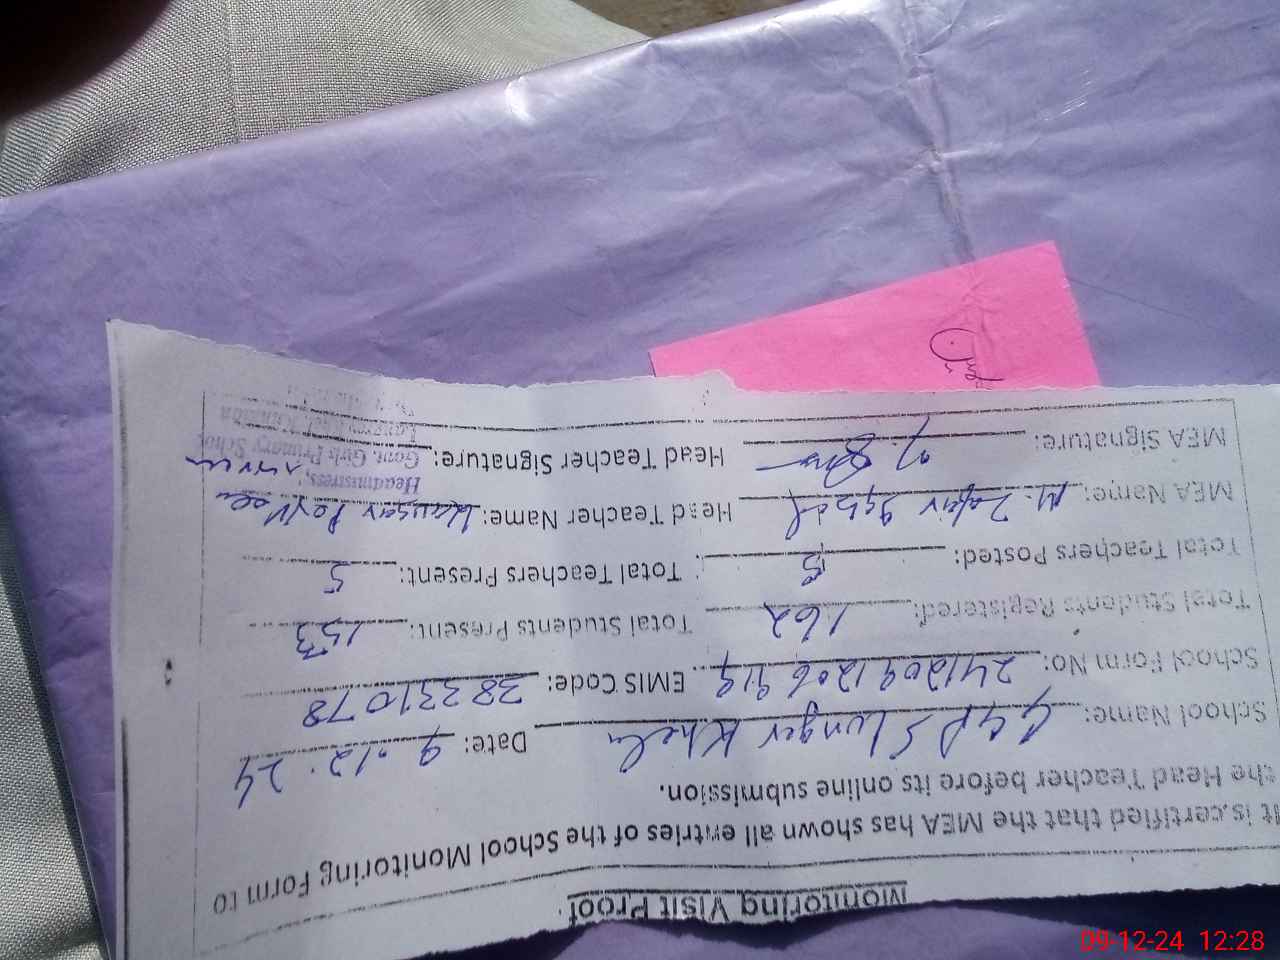 Monitoring Visit Proof
It is certified that the MEA has shown all entries of the School Monitoring Form to
the Head Teacher before its online submission.
School Name: GGPS Lunger Khel Date: 9.12.24
School Form No: EMIS Code: 38231078
Total Students Registered: 162 Total Students Present: 153
Total Teachers Posted: 5 Total Teachers Present: 5
MEA Name: M. Zafar Iqbal Head Teacher Name: Kausar Parveen
MEA Signature: Head Teacher Signature:
Headmistress,
Govt. Girls Primary School
09-12-24 12:28